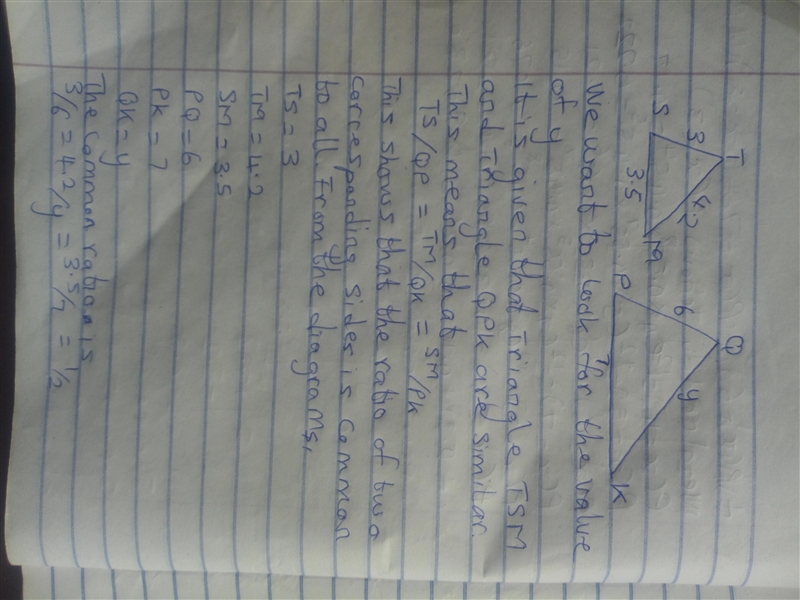 T
Q
3
4.2
6
y
S
3.5
M
P
7
K
We want to look for the value
of y
It is given that Triangle TSM
and Triangle QPK are similar.
This means that
TS/QP = TM/QK = SM/PK
This shows that the ratio of two
corresponding sides is common
to all from the diagrams,
TS = 3
TM = 4.2
SM = 3.5
PQ = 6
PK = 7
QK = y
The common ration is
3/6 = 4.2/y = 3.5/7 = 1/2